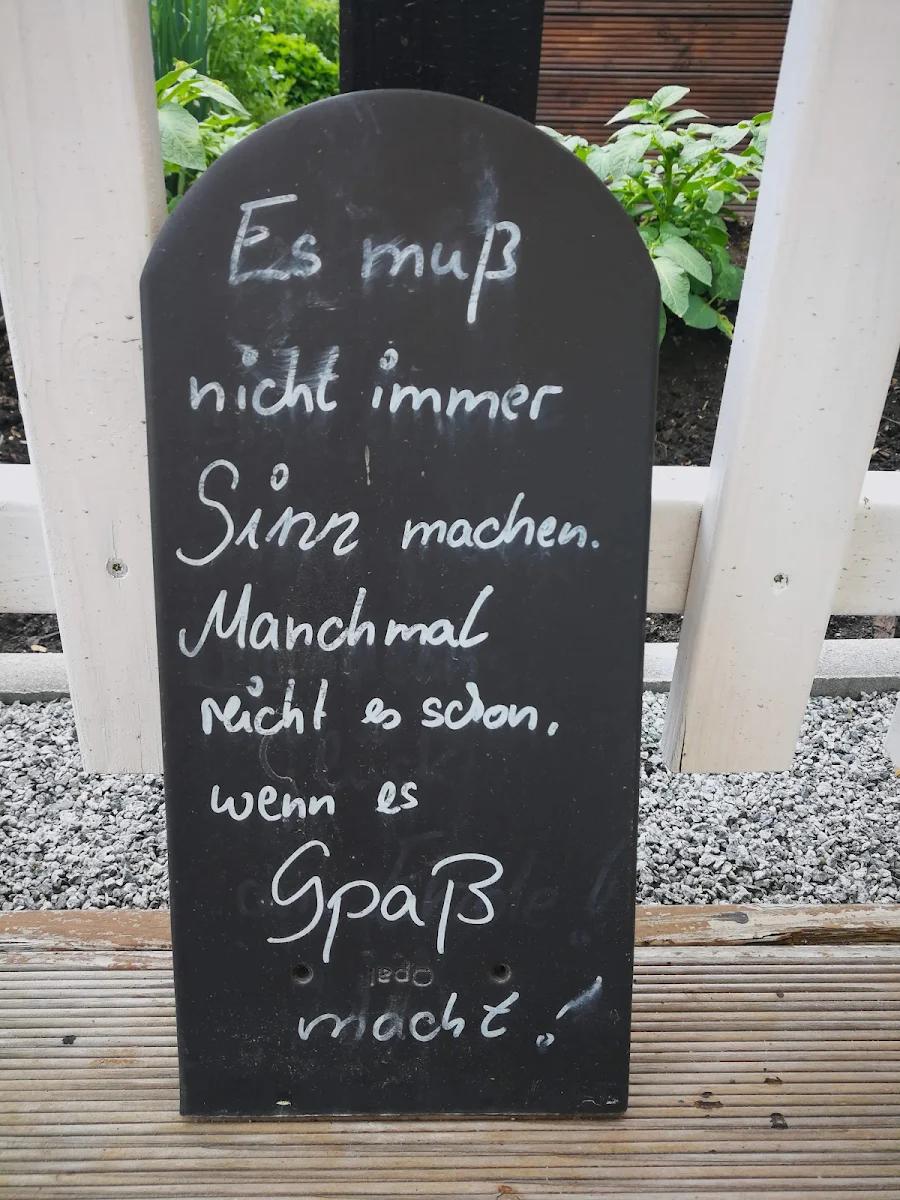 Es muß
nicht immer
Sinn machen.
Manchmal
reicht es schon,
wenn es
Spaß
Opal
macht!